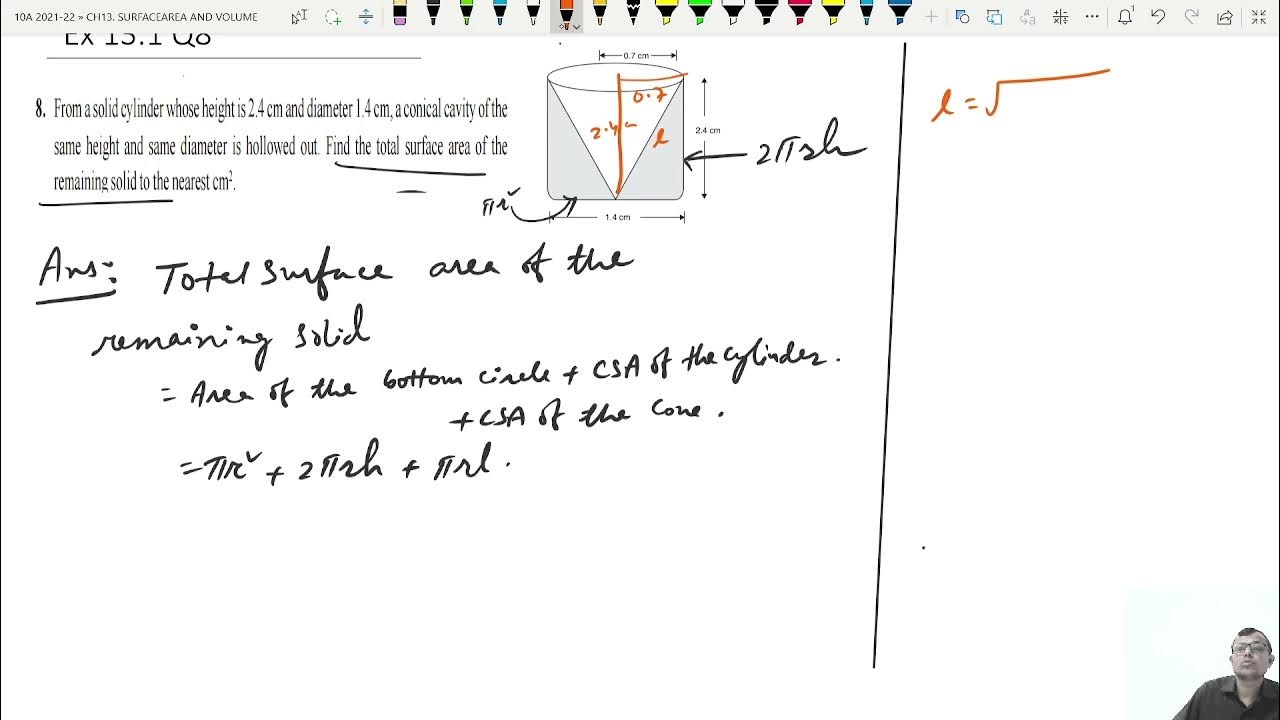 10A 2021-22 » CH 13. SURFACEAREA AND VOLUME
Ex 13.1 Q8
8. From a solid cylinder whose height is 2.4 cm and diameter 1.4 cm, a conical cavity of the
same height and same diameter is hollowed out. Find the total surface area of the
remaining solid to the nearest cm².
0.7 cm
0.7
2.4
l
2.4 cm
2πrh
πr²
1.4 cm
Ans: Total surface area of the
remaining solid
= Area of the bottom circle + CSA of the cylinder.
+ CSA of the cone.
= πr² + 2πrh + πrl.
l = √